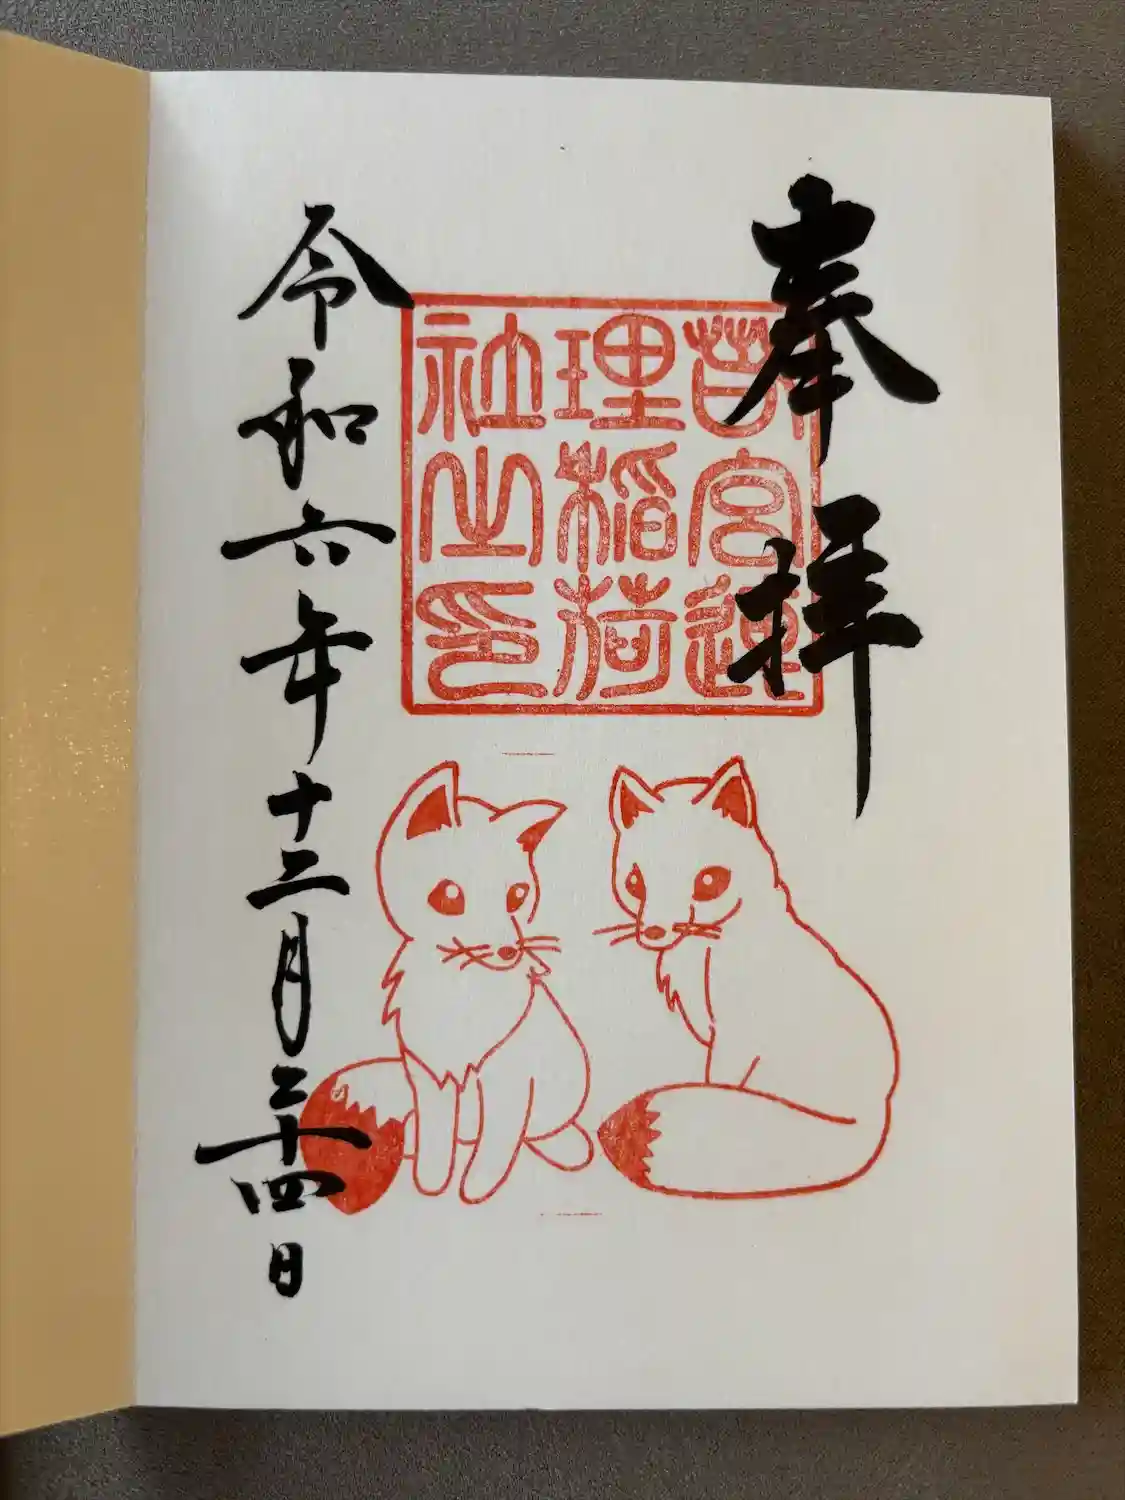 奉拝
若宮連
理稲荷
社之印
令和六年十二月二十四日